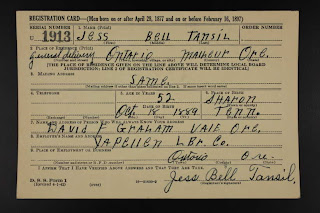 REGISTRATION CARD—(Men born on or after April 28, 1877 and on or before February 16, 1897)
SERIAL NUMBER 1. NAME (Print) ORDER NUMBER
U 1913 Jess Bell Tansil
(First) (Middle) (Last)
2. PLACE OF RESIDENCE (Print)
General Delivery Ontario Malheur Ore.
(Number and street) (Town, township, village, or city) (County) (State)
[THE PLACE OF RESIDENCE GIVEN ON THE LINE ABOVE WILL DETERMINE LOCAL BOARD
JURISDICTION; LINE 2 OF REGISTRATION CERTIFICATE WILL BE IDENTICAL]
3. MAILING ADDRESS
SAME.
4. TELEPHONE 5. AGE IN YEARS 6. PLACE OF BIRTH
52. Sharon
DATE OF BIRTH
Oct 1889 Tenn.
(Mo.) (Day) (Yr.) (State or country)
7. NAME AND ADDRESS OF PERSON WHO WILL ALWAYS KNOW YOUR ADDRESS
David F Graham Vale Ore.
8. EMPLOYER'S NAME AND ADDRESS
Van Petten Lbr. Co.
9. PLACE OF EMPLOYMENT OR BUSINESS
Ontario Ore.
(Number and street or R. F. D. number) (Town) (County) (State)
I AFFIRM THAT I HAVE VERIFIED ABOVE ANSWERS AND THAT THEY ARE TRUE.
D. S. S. Form 1
(Revised 4-1-42) (over)
Jess Bell Tansil.
(Registrant's signature)